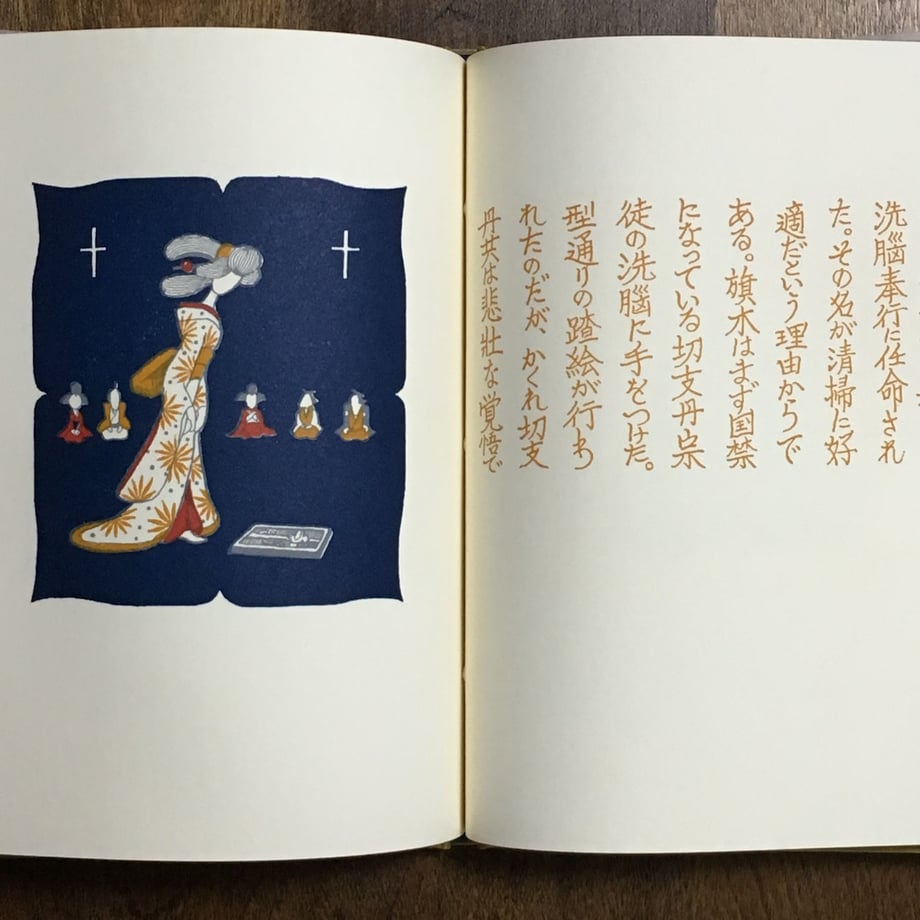 洗脳奉行に任命され
た。その名が清掃に好
適だという理由からで
ある。旗木はまず国禁
になっている切支丹宗
徒の洗脳に手をつけた。
型通りの踏絵が行わ
れたのだが、かくれ切支
丹共は悲壮な覚悟で